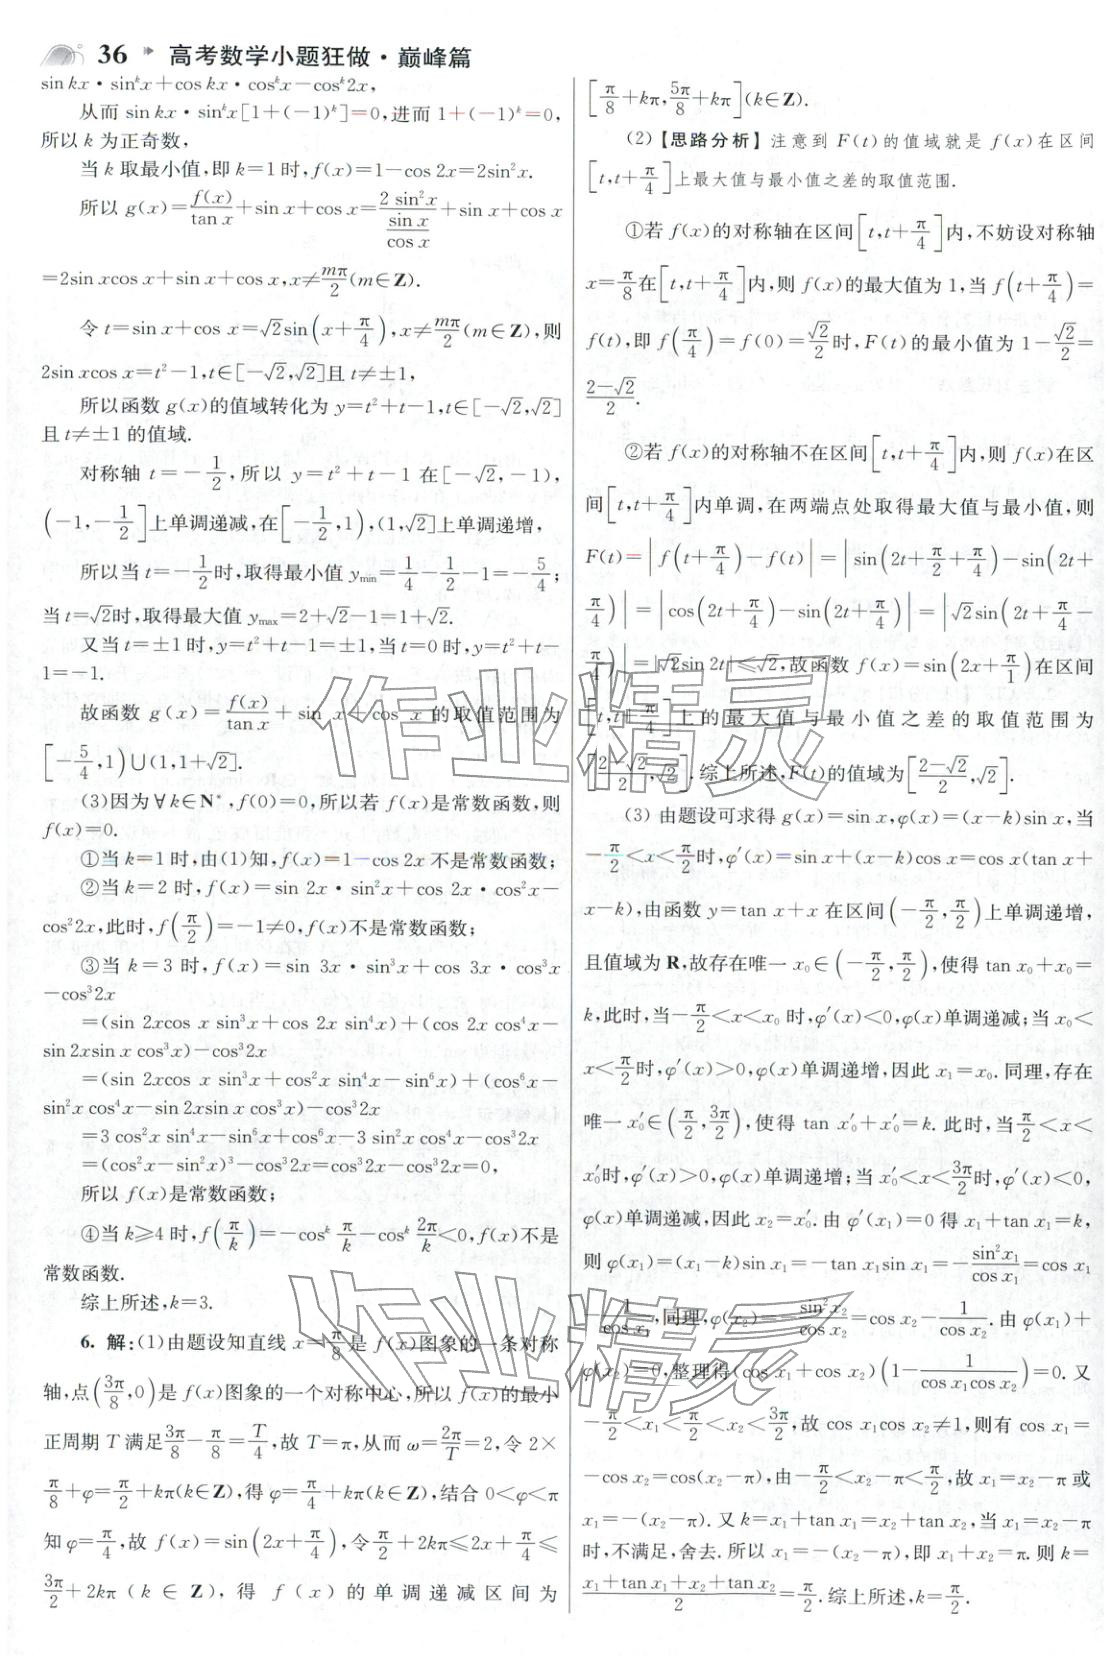 36 高考数学小题狂做·巅峰篇
sin kx·sin^k x+cos kx·cos^k x−cos^k 2x,
从而 sin kx·sin^k x[1+(−1)^k]=0,进而 1+(−1)^k=0,
所以 k 为正奇数,
当 k 取最小值,即 k=1 时,f(x)=1−cos 2x=2sin²x.
所以 g(x)=f(x)/tan x+sin x+cos x=2 sin²x/(sin x/cos x)+sin x+cos x
=2sin xcos x+sin x+cos x,x≠mπ/2(m∈Z).
令 t=sin x+cos x=√2sin(x+π/4),x≠mπ/2(m∈Z),则
2sin xcos x=t²−1,t∈[−√2,√2]且 t≠±1,
所以函数 g(x)的值域转化为 y=t²+t−1,t∈[−√2,√2]
且 t≠±1 的值域.
对称轴 t=−1/2,所以 y=t²+t−1 在[−√2,−1),
(−1,−1/2]上单调递减,在[−1/2,1),(1,√2]上单调递增,
所以当 t=−1/2时,取得最小值 y_min=1/4−1/2−1=−5/4;
当 t=√2时,取得最大值 y_max=2+√2−1=1+√2.
又当 t=±1 时,y=t²+t−1=±1,当 t=0 时,y=t²+t−
1=−1.
故函数 g(x)=f(x)/tan x+sin x+cos x 的取值范围为
[−5/4,1)∪(1,1+√2].
(3)因为∀k∈N*,f(0)=0,所以若 f(x)是常数函数,则
f(x)=0.
①当 k=1 时,由(1)知,f(x)=1−cos 2x 不是常数函数;
②当 k=2 时,f(x)=sin 2x·sin²x+cos 2x·cos²x−
cos²2x,此时,f(π/2)=−1≠0,f(x)不是常数函数;
③当 k=3 时,f(x)=sin 3x·sin³x+cos 3x·cos³x
−cos³2x
=(sin 2xcos x sin³x+cos 2x sin⁴x)+(cos 2x cos⁴x−
sin 2xsin x cos³x)−cos³2x
=(sin 2xcos x sin³x+cos²x sin⁴x−sin⁶x)+(cos⁶x−
sin²x cos⁴x−sin 2xsin x cos³x)−cos³2x
=3 cos²x sin⁴x−sin⁶x+cos⁶x−3 sin²x cos⁴x−cos³2x
=(cos²x−sin²x)³−cos³2x=cos³2x−cos³2x=0,
所以 f(x)是常数函数;
④当 k≥4 时,f(π/k)=−cos^k π/k−cos^k 2π/k<0,f(x)不是
常数函数.
综上所述,k=3.
6. 解:(1)由题设知直线 x=π/8 是 f(x)图象的一条对称
轴,点(3π/8,0)是 f(x)图象的一个对称中心,所以 f(x)的最小
正周期 T 满足3π/8−π/8=T/4,故 T=π,从而 ω=2π/T=2,令 2×
π/8+φ=π/2+kπ(k∈Z),得 φ=π/4+kπ(k∈Z),结合 0<φ<π
知 φ=π/4,故 f(x)=sin(2x+π/4),令π/2+2kπ≤2x+π/4≤
3π/2+2kπ(k∈Z),得 f(x)的单调递减区间为
[π/8+kπ,5π/8+kπ](k∈Z).
(2)【思路分析】注意到 F(t)的值域就是 f(x)在区间
[t,t+π/4]上最大值与最小值之差的取值范围.
①若 f(x)的对称轴在区间[t,t+π/4]内,不妨设对称轴
x=π/8在[t,t+π/4]内,则 f(x)的最大值为 1,当 f(t+π/4)=
f(t),即 f(π/4)=f(0)=√2/2时,F(t)的最小值为 1−√2/2=
(2−√2)/2.
②若 f(x)的对称轴不在区间[t,t+π/4]内,则 f(x)在区
间[t,t+π/4]内单调,在两端点处取得最大值与最小值,则
F(t)=|f(t+π/4)−f(t)|=|sin(2t+π/2+π/4)−sin(2t+
π/4)|=|cos(2t+π/4)−sin(2t+π/4)|=|√2sin(2t+π/4−
π/4)|=|√2sin 2t|≤√2,故函数 f(x)=sin(2x+π/1)在区间
[t,t+π/4]上的最大值与最小值之差的取值范围为
[(2−√2)/2,√2].综上所述,F(t)的值域为[(2−√2)/2,√2].
(3)由题设可求得 g(x)=sin x,φ(x)=(x−k)sin x,当
−π/2<x<π/2时,φ′(x)=sin x+(x−k)cos x=cos x(tan x+
x−k),由函数 y=tan x+x 在区间(−π/2,π/2)上单调递增,
且值域为 R,故存在唯一 x₀∈(−π/2,π/2),使得 tan x₀+x₀=
k,此时,当−π/2<x<x₀ 时,φ′(x)<0,φ(x)单调递减;当 x₀<
x<π/2时,φ′(x)>0,φ(x)单调递增,因此 x₁=x₀.同理,存在
唯一 x₀′∈(π/2,3π/2),使得 tan x₀′+x₀′=k.此时,当π/2<x<
x₀′时,φ′(x)>0,φ(x)单调递增;当 x₀′<x<3π/2时,φ′(x)<0,
φ(x)单调递减,因此 x₂=x₀′.由 φ′(x₁)=0 得 x₁+tan x₁=k,
则 φ(x₁)=(x₁−k)sin x₁=−tan x₁sin x₁=−sin²x₁/cos x₁=cos x₁
−1/cos x₁,同理,φ(x₂)=−sin²x₂/cos x₂=cos x₂−1/cos x₂.由 φ(x₁)+
φ(x₂)=0,整理得(cos x₁+cos x₂)(1−1/(cos x₁cos x₂))=0.又
−π/2<x₁<π/2<x₂<3π/2,故 cos x₁cos x₂≠1,则有 cos x₁=
−cos x₂=cos(x₂−π),由−π/2<x₂−π<π/2,故 x₁=x₂−π 或
x₁=−(x₂−π).又 k=x₁+tan x₁=x₂+tan x₂,当 x₁=x₂−π
时,不满足,舍去.所以 x₁=−(x₂−π),即 x₁+x₂=π.则 k=
(x₁+tan x₁+x₂+tan x₂)/2=π/2.综上所述,k=π/2.
作业精灵
作业精灵